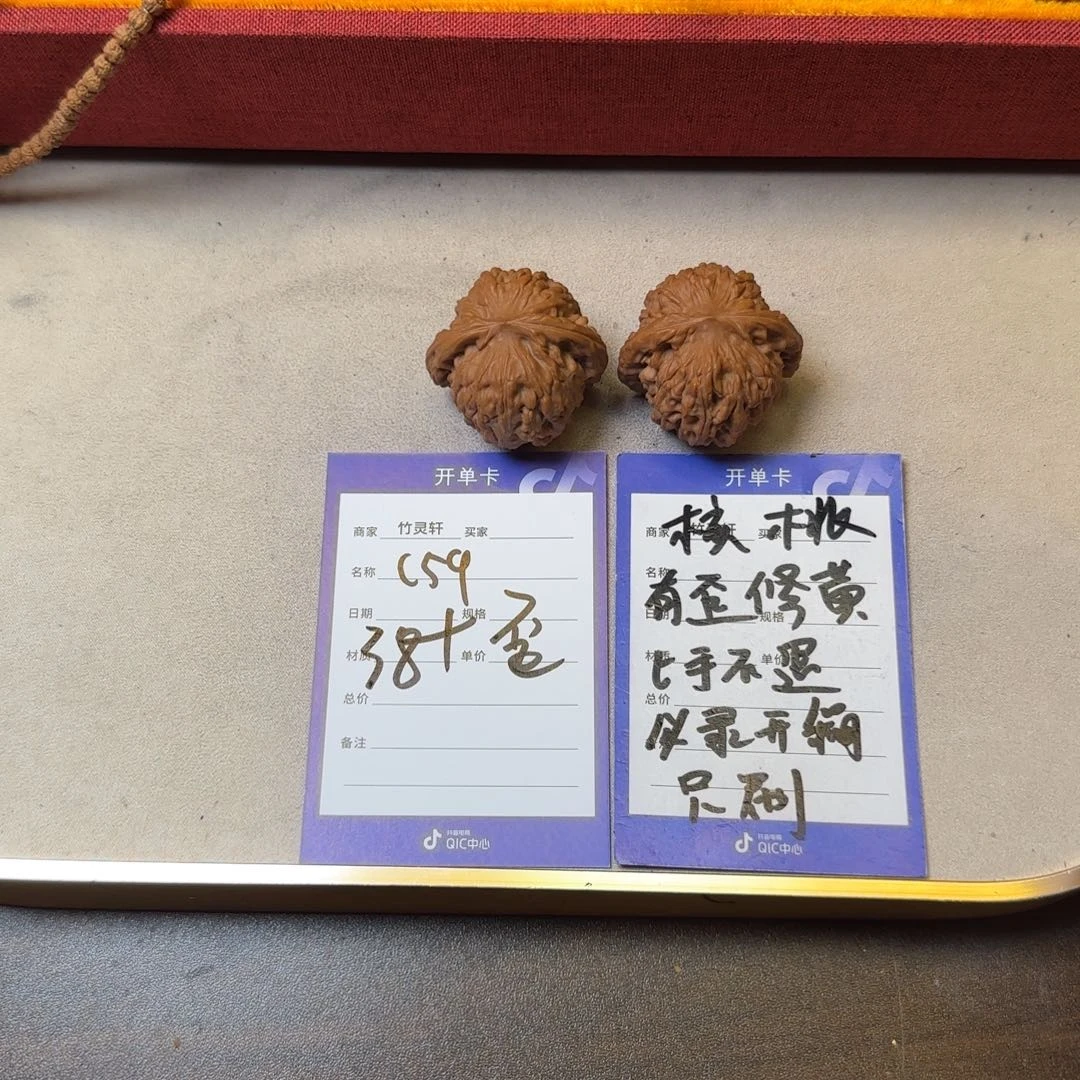 开单卡
商家 竹灵轩 买家
名称 C59
日期 规格
38+ 歪
材质 单价
总价
备注
抖音电商
QIC中心
开单卡
商家 买家
核桃
名称
有歪修黄
日 规格
上手不退
材质 单价
总价
必录开箱
尺刷
抖音电商
QIC中心